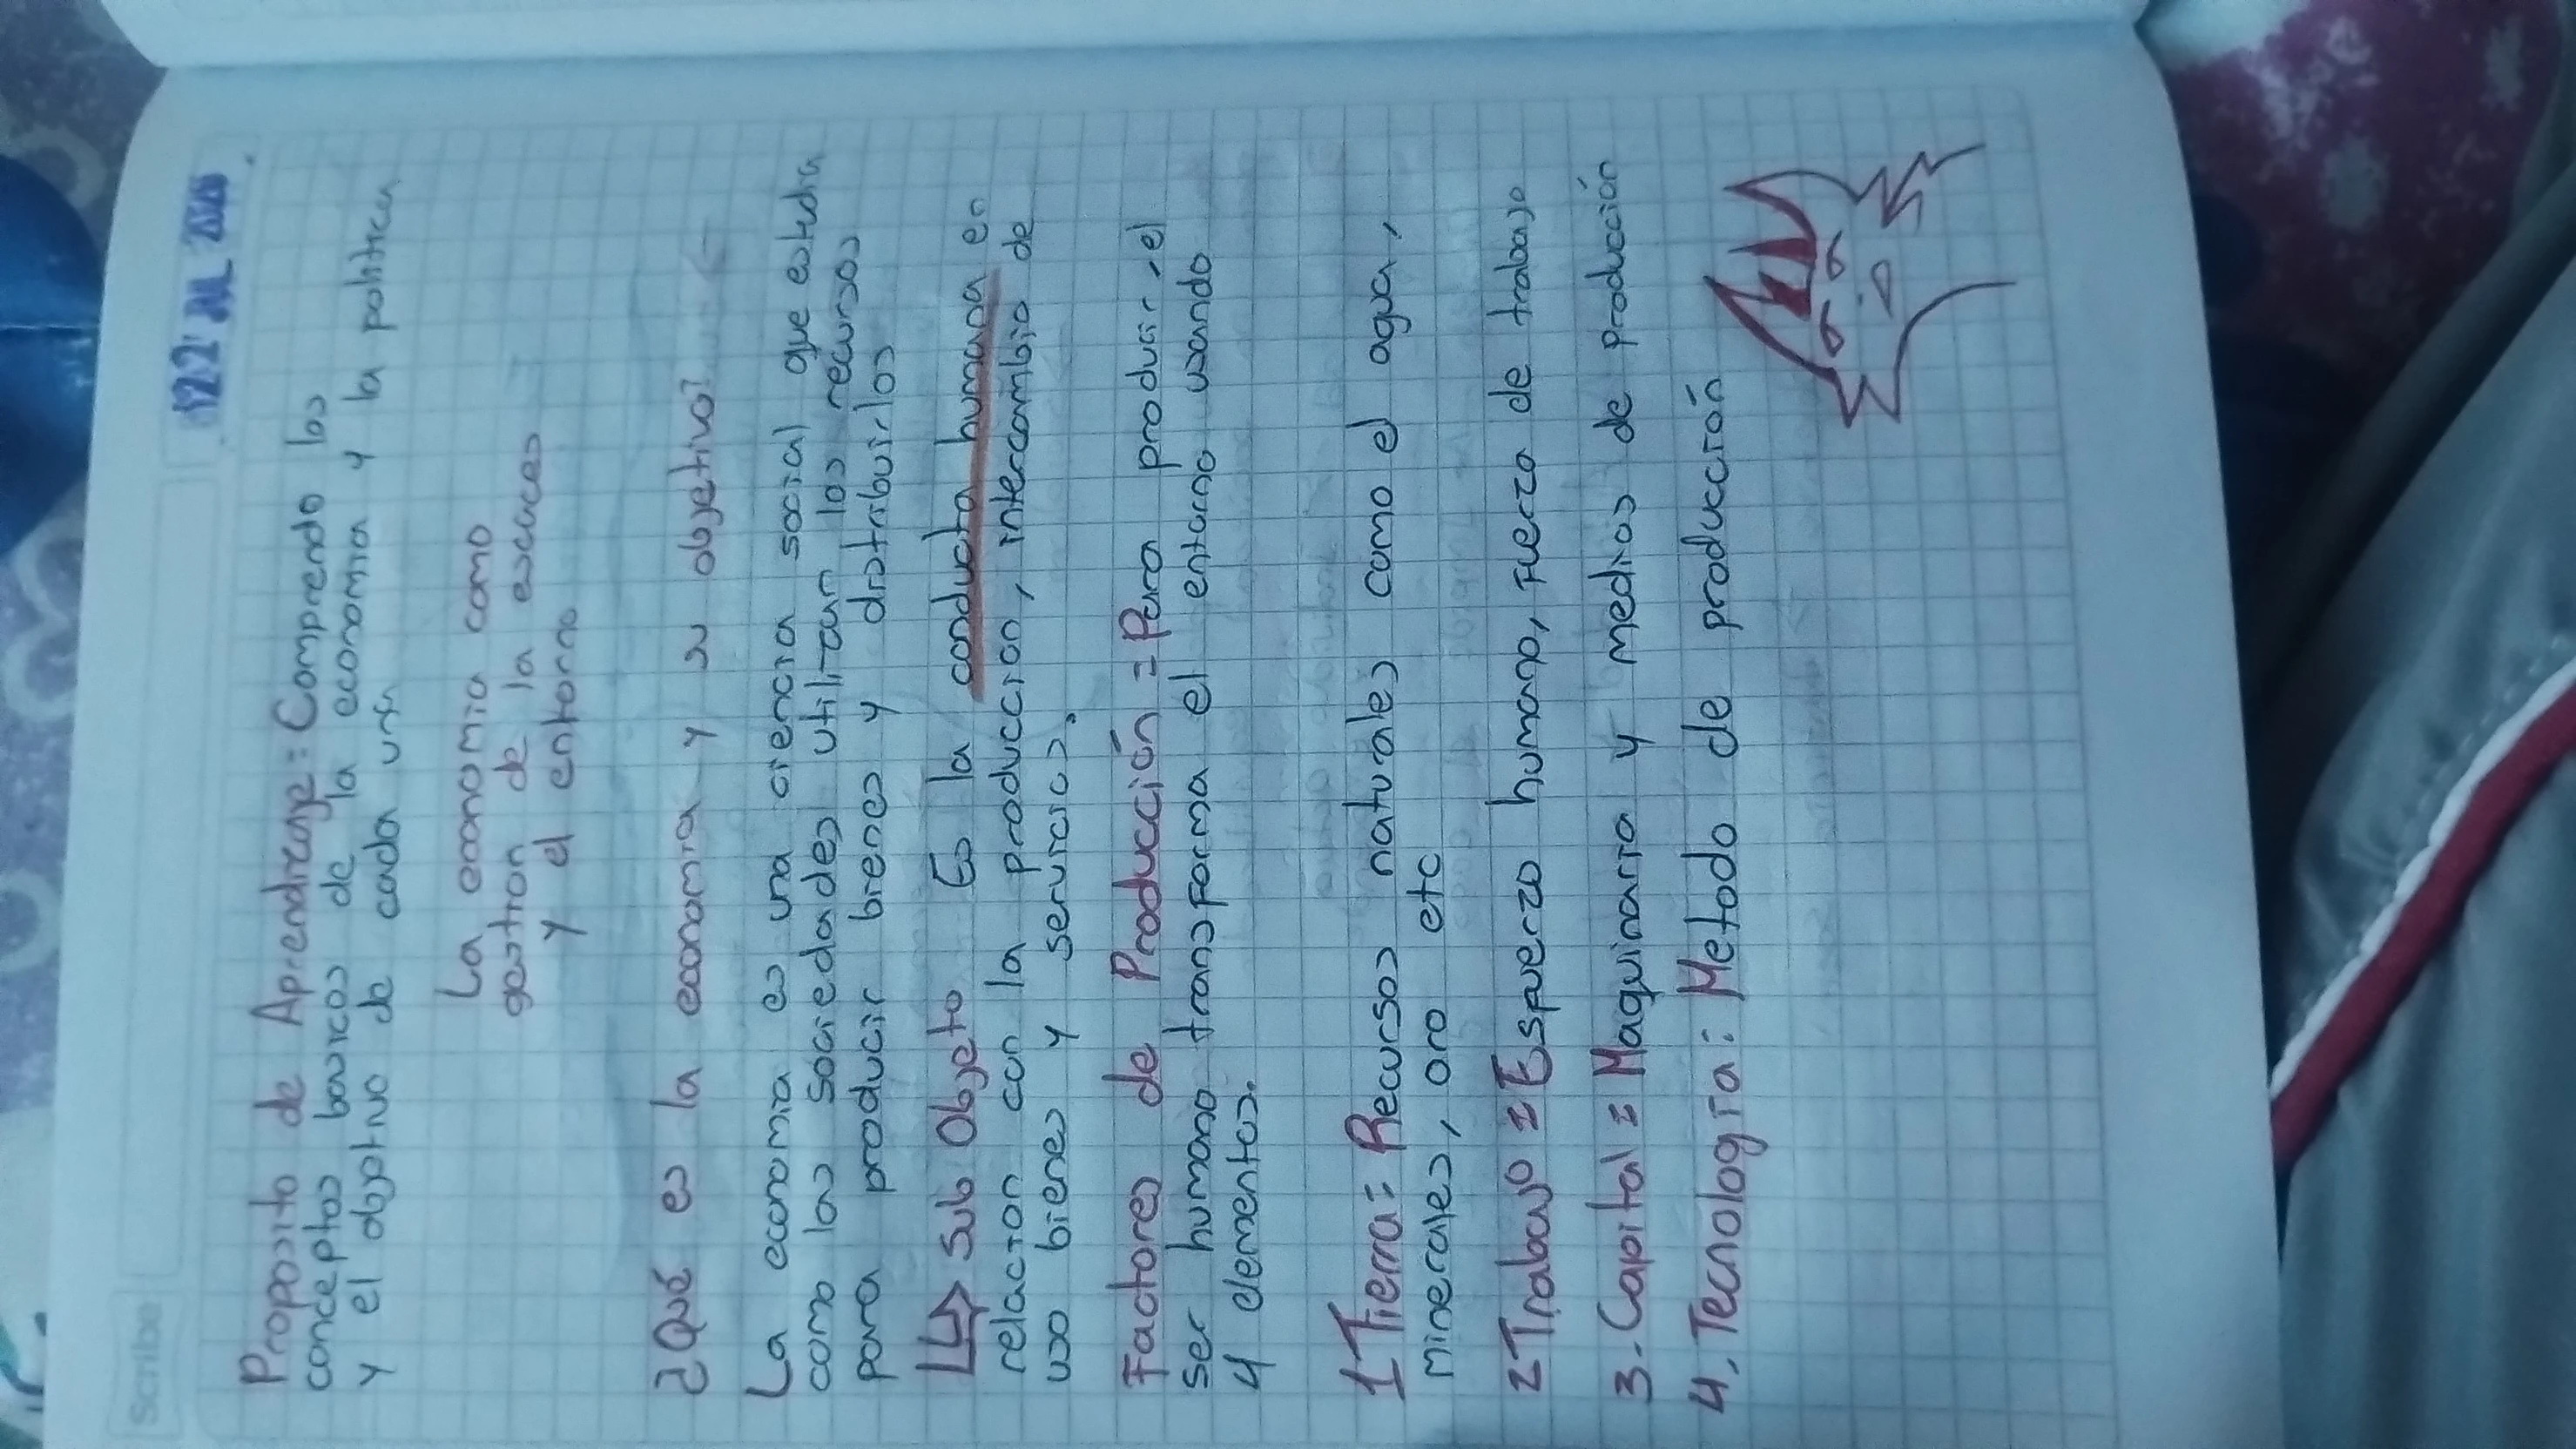 Scribe
22 JUL 2025
Proposito de Aprendizaje: Comprendo los
conceptos basicos de la economia y la politica
y el objetivo de cada un
La economia como
gestion de la escaces
y el entorno
¿Qué es la economia y su objetivo?
La economia es una ciencia social que estudia
como las sociedades utilizan los recursos
para producir bienes y distribuirlos
Sub Objeto Es la conducta humana en
relacion con la produccion, intercambio de
uso bienes y servicios.
Factores de Producción = Para producir, el
ser humano transforma el entorno usando
4 elementos.
1 Tierra: Recursos naturales como el agua,
minerales, oro etc
2 Trabajo: Esfuerzo humano, Fuerza de trabajo
3. Capital: Maquinaria y medios de producción
4. Tecnología: Metodo de producción